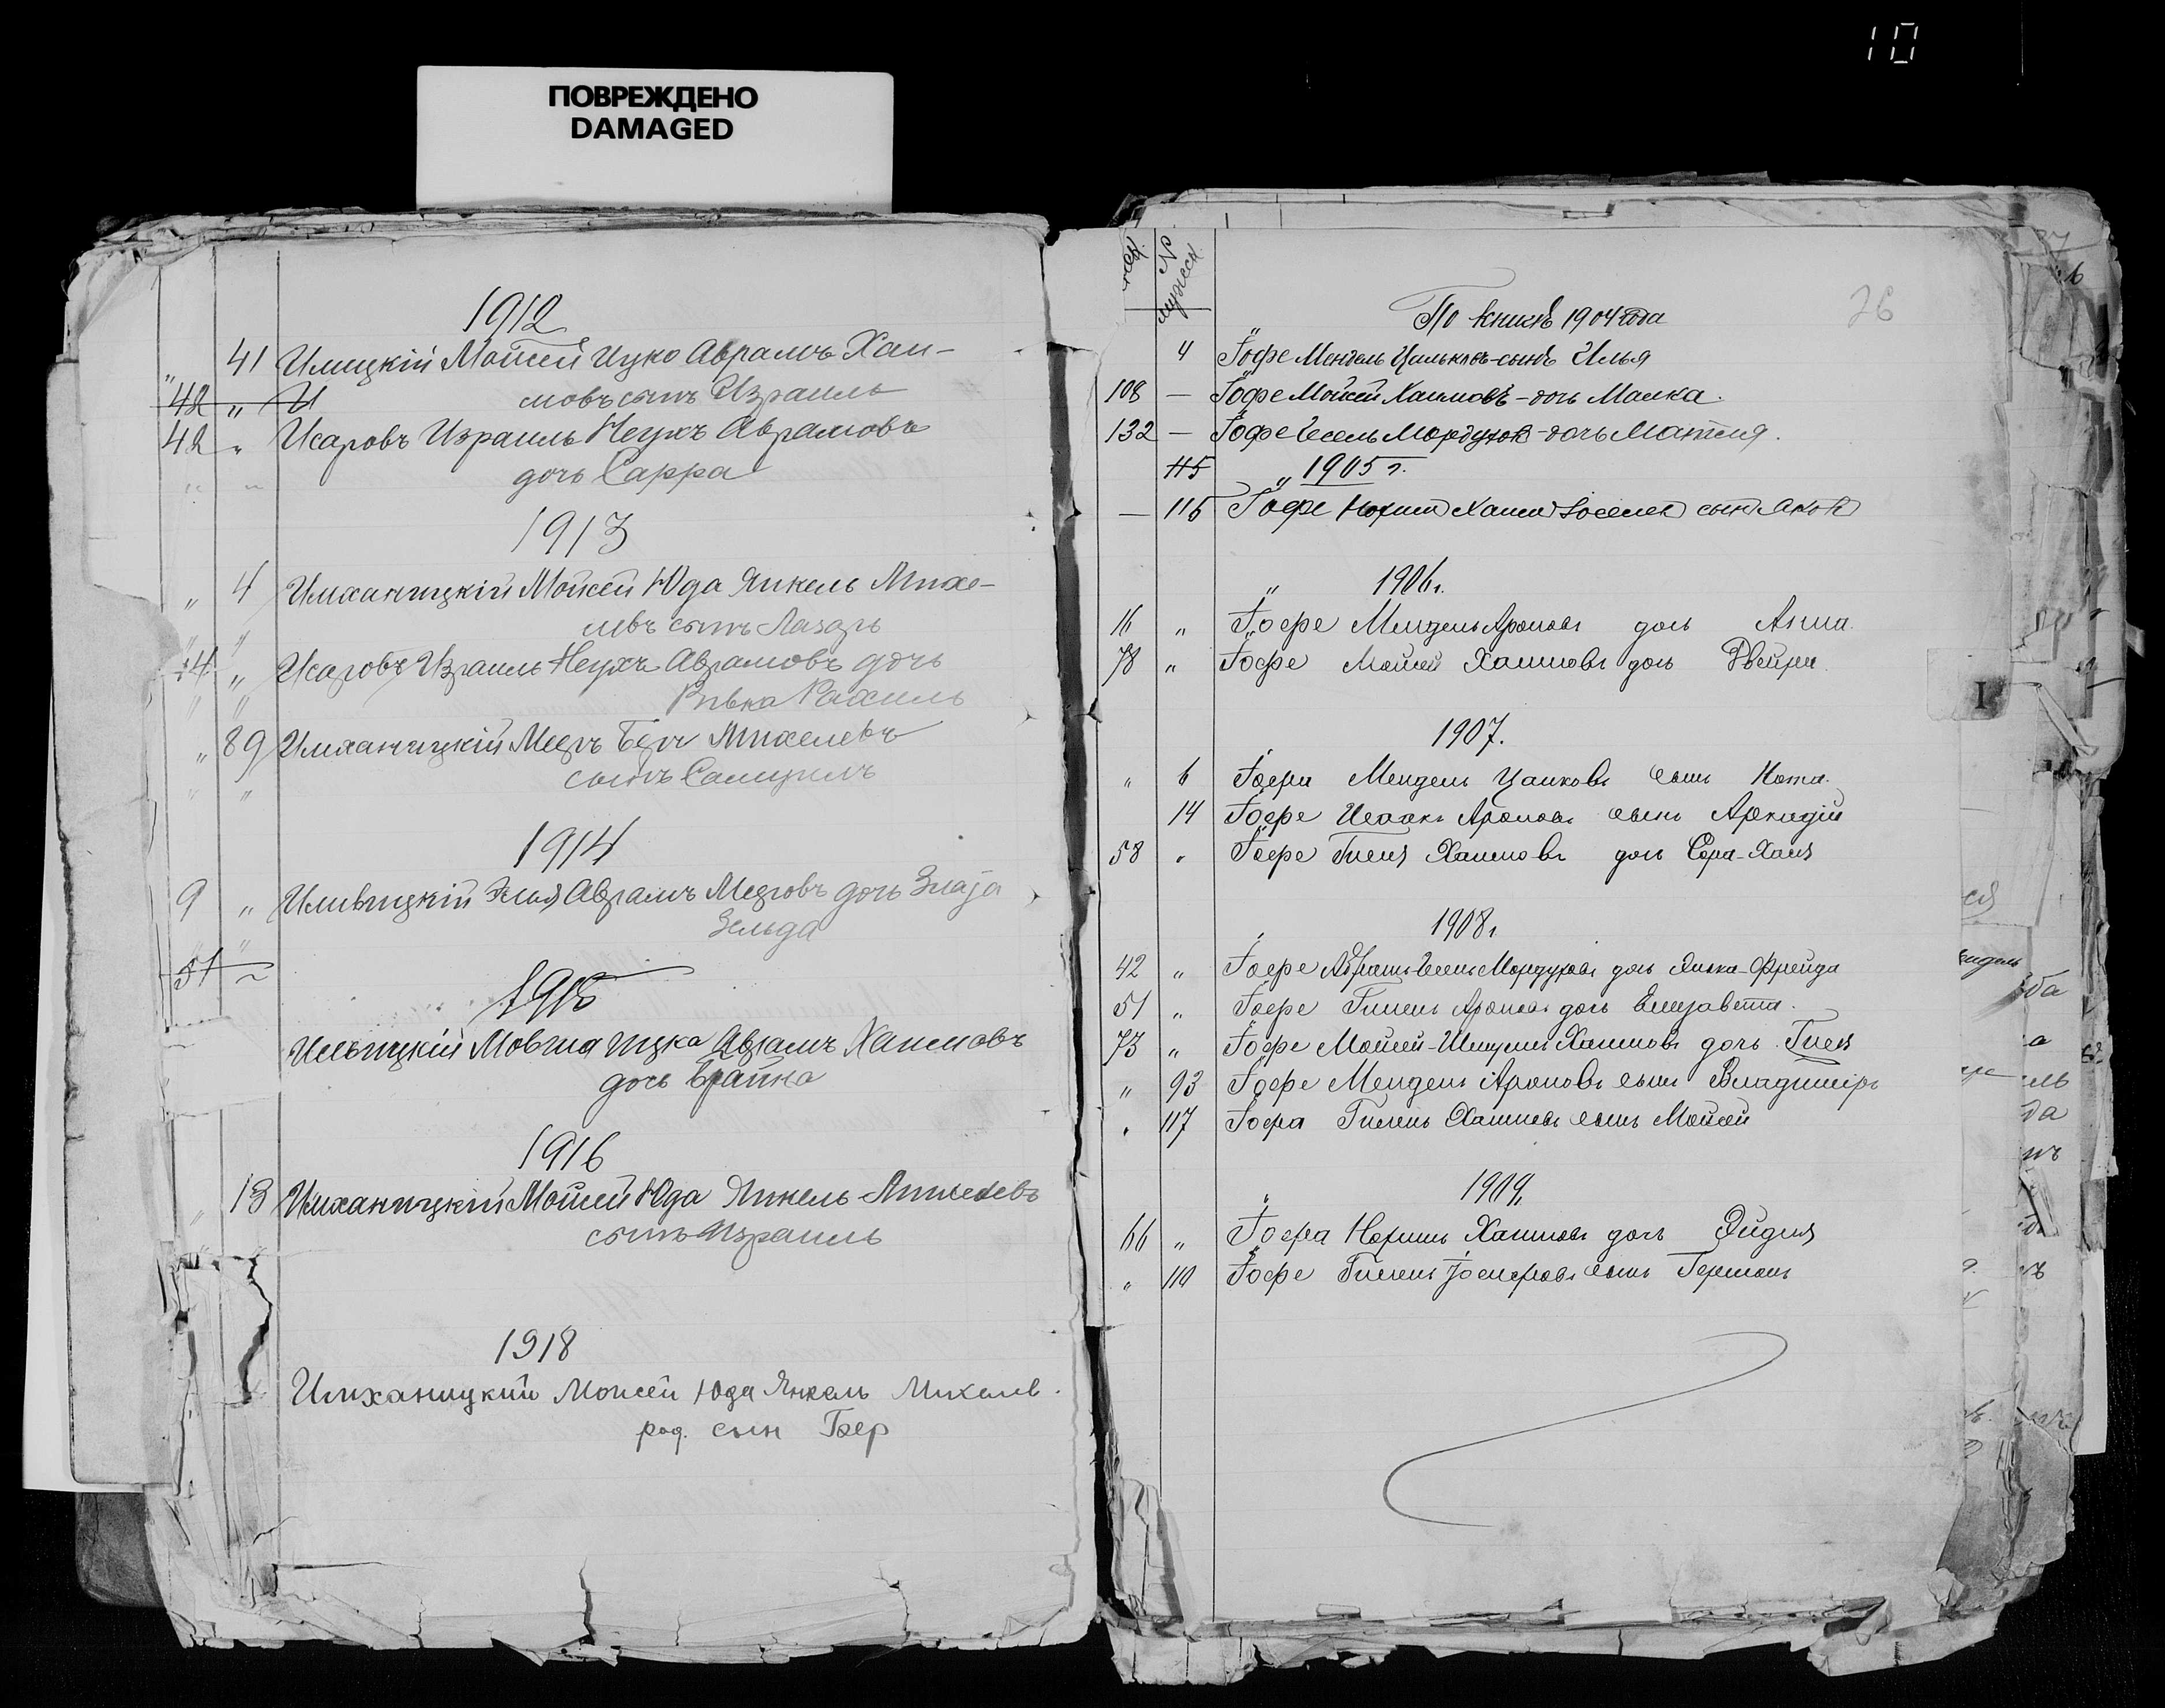 10
ПОВРЕЖДЕНО
DAMAGED
1912
" 41 Илицкій Мойсей Ицко Аврамъ Хаи-
42 " И мовъ сынъ Израиль
42 " Исаровъ Израиль Неухъ Аврамовъ
дочь Сарра
1913
" 4 Илиханицкій Мойсей Юда Янкель Михе-
левъ сынъ Лазарь
14 " Исаровъ Израиль Неухъ Аврамовъ дочь
Ривка Рахиль
" 89 Илиханицкій Мееръ Беръ Михелевъ
сынъ Самуилъ
1914
9 " Аврамъ Мееровъ дочь
Зельда
51 "
1915
Мовша Ицка Аврамъ Хаимовъ
дочь
1916
" 13 Илиханицкій Мойсей Юда Янкель Михелевъ
сынъ Израиль
1918
Илиханицкий Моисей Юда Янкель Михелев.
род. сын Бер
№
мужеск
26
По книгѣ 1904 года
4 Іофе Мендель сынъ Илья
108 — Іофе Мойсей Хаимовъ - дочь Малка.
132 — Іофе Іосель Мордухов - дочь Матля.
115 " 1905 г.
— 115 Іофе Нохим Хаим сын Яков
" 1906 г.
16 " Іофе Мендель Ароновъ дочь Анна.
78 " Іофе Мойсей Хаимовъ дочь Двейра.
1907.
" 6 Іофе Мендель сынъ Нота.
14 Іофе Исаакъ Ароновъ сынъ Аркадій
58 " Іофе Хаимовъ дочь Сора-Хая
1908 г.
42 " Іофе Мордуховъ дочь Фрейда
51 " Іофе Гилель Ароновъ дочь Елизавета.
73 " Іофе Мойсей-Шмуель Хаимовъ дочь Гися
" 93 Іофе Мендель Ароновъ сынъ Владимиръ
" 117 Іофе Гилель Хаимовъ сынъ Мойсей
1909 г.
66 " Іофе Нохимъ Хаимовъ дочь
" 110 Іофе Гилель сынъ Германъ